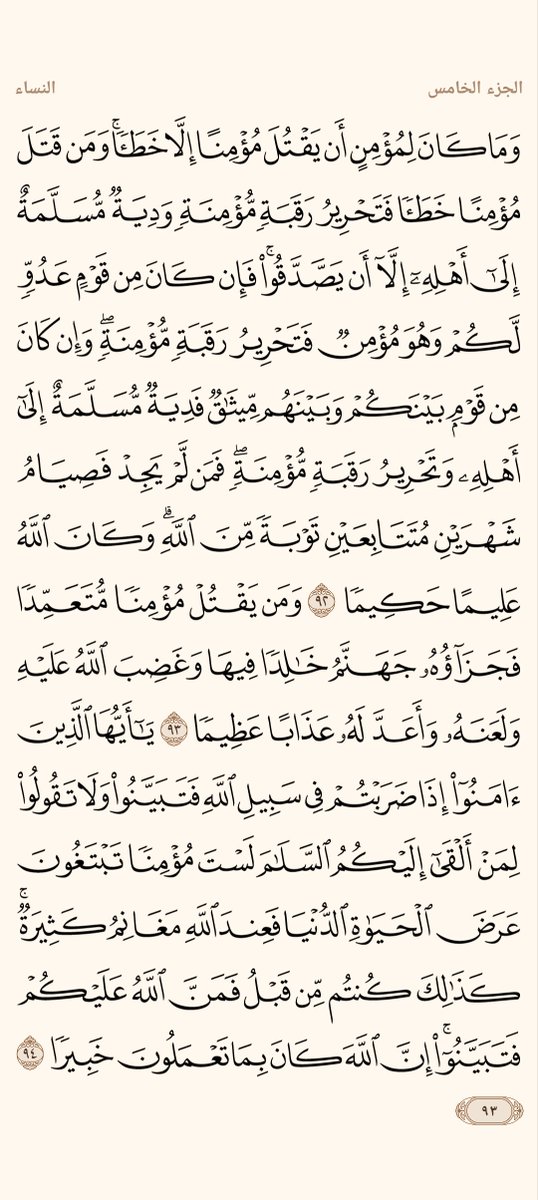 الجزء الخامس
النساء
وَمَا كَانَ لِمُؤْمِنٍ أَن يَقْتُلَ مُؤْمِنًا إِلَّا خَطَـًٔا ۚ وَمَن قَتَلَ
مُؤْمِنًا خَطَـًٔا فَتَحْرِيرُ رَقَبَةٍ مُّؤْمِنَةٍ وَدِيَةٌ مُّسَلَّمَةٌ
إِلَىٰٓ أَهْلِهِۦٓ إِلَّآ أَن يَصَّدَّقُوا۟ ۚ فَإِن كَانَ مِن قَوْمٍ عَدُوٍّ
لَّكُمْ وَهُوَ مُؤْمِنٌ فَتَحْرِيرُ رَقَبَةٍ مُّؤْمِنَةٍ ۖ وَإِن كَانَ
مِن قَوْمٍۭ بَيْنَكُمْ وَبَيْنَهُم مِّيثَـٰقٌ فَدِيَةٌ مُّسَلَّمَةٌ إِلَىٰٓ
أَهْلِهِۦ وَتَحْرِيرُ رَقَبَةٍ مُّؤْمِنَةٍ ۖ فَمَن لَّمْ يَجِدْ فَصِيَامُ
شَهْرَيْنِ مُتَتَابِعَيْنِ تَوْبَةً مِّنَ ٱللَّهِ ۗ وَكَانَ ٱللَّهُ
عَلِيمًا حَكِيمًا ٩٢ وَمَن يَقْتُلْ مُؤْمِنًا مُّتَعَمِّدًا
فَجَزَآؤُهُۥ جَهَنَّمُ خَـٰلِدًا فِيهَا وَغَضِبَ ٱللَّهُ عَلَيْهِ
وَلَعَنَهُۥ وَأَعَدَّ لَهُۥ عَذَابًا عَظِيمًا ٩٣ يَـٰٓأَيُّهَا ٱلَّذِينَ
ءَامَنُوٓا۟ إِذَا ضَرَبْتُمْ فِى سَبِيلِ ٱللَّهِ فَتَبَيَّنُوا۟ وَلَا تَقُولُوا۟
لِمَنْ أَلْقَىٰٓ إِلَيْكُمُ ٱلسَّلَـٰمَ لَسْتَ مُؤْمِنًا تَبْتَغُونَ
عَرَضَ ٱلْحَيَوٰةِ ٱلدُّنْيَا فَعِندَ ٱللَّهِ مَغَانِمُ كَثِيرَةٌ ۚ
كَذَٰلِكَ كُنتُم مِّن قَبْلُ فَمَنَّ ٱللَّهُ عَلَيْكُمْ
فَتَبَيَّنُوٓا۟ ۚ إِنَّ ٱللَّهَ كَانَ بِمَا تَعْمَلُونَ خَبِيرًا ٩٤
٩٣